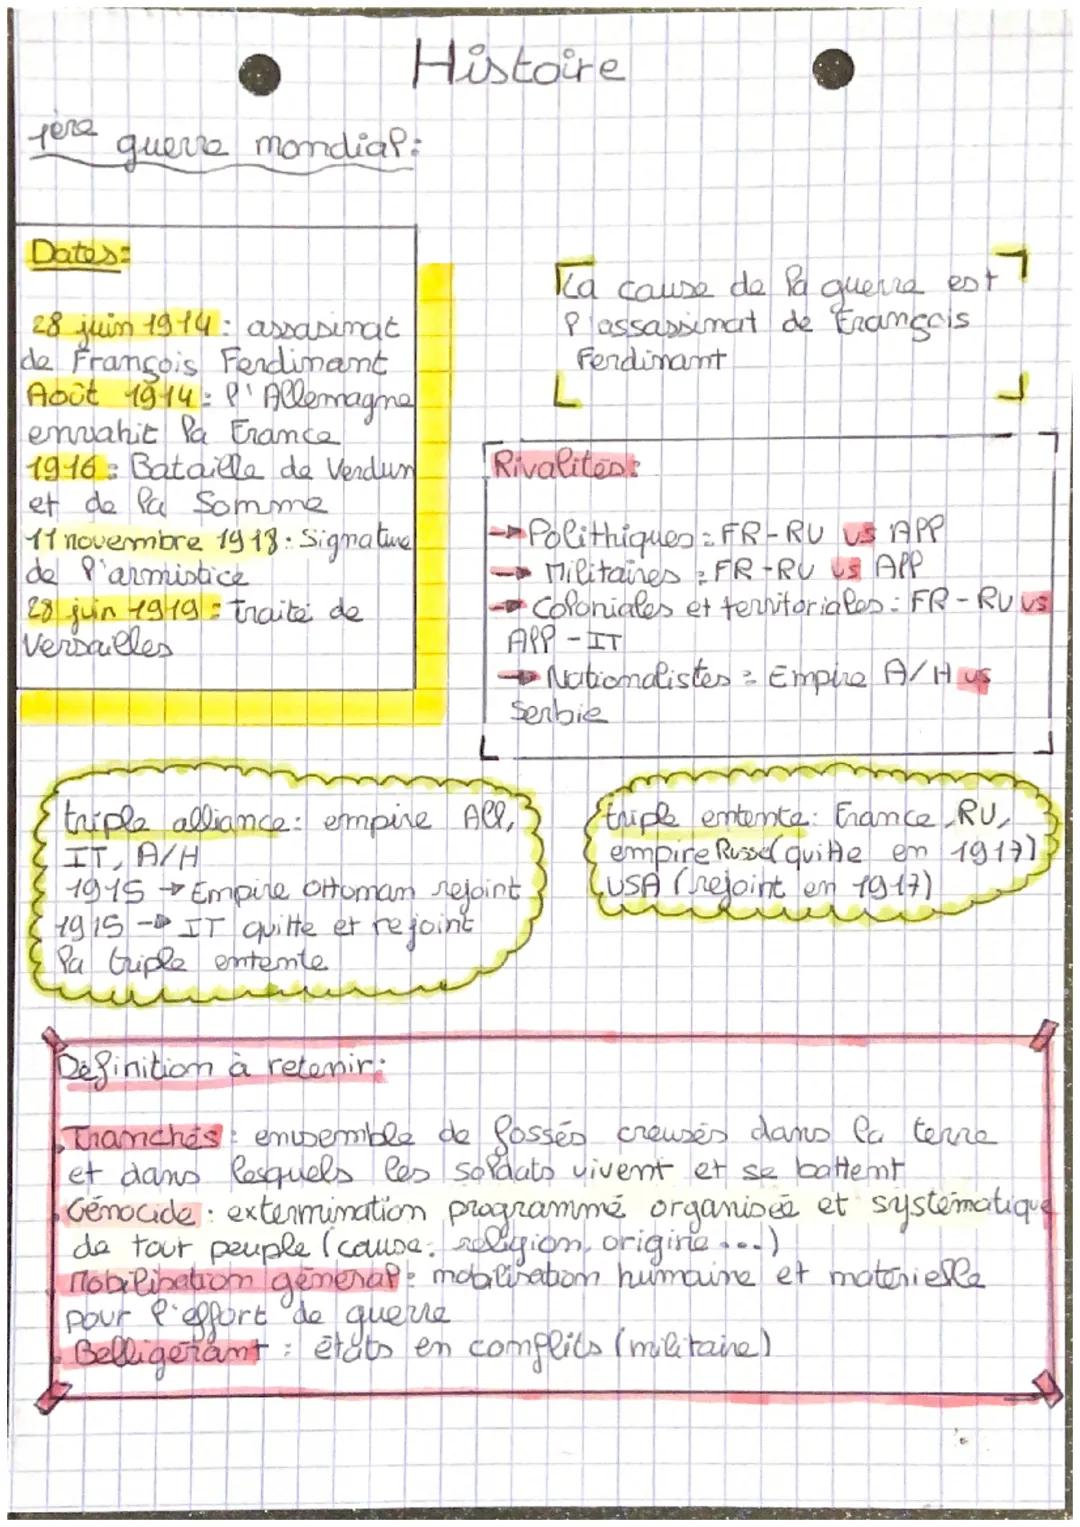 Histoire
1ère guerre mondial:
Dates:
28 juin 1914 : assasinat
de François Ferdinant
Août 1914 : l'Allemagne
envahit la France
1916 : Bataille de Verdun
et de la Somme
11 novembre 1918 : Signature
de l'armistice
28 juin 1919 : traité de
Versailles
La cause de la guerre est
l'assassinat de François
Ferdinant
Rivalités:
→ Polithiques : FR-RU vs APP
→ Militaires : FR-RU vs APP
→ Coloniales et territoriales : FR-RU vs
APP-IT
→ Nationalistes : Empire A/H vs
Serbie
triple alliance : empire All,
IT, A/H
1915 → Empire Ottoman rejoint
1915 → IT quitte et rejoint
la triple entente
triple entente : France, RU,
empire Russe (quitte en 1917)
USA (rejoint en 1917)
Définition à retenir:
Tranchés : emsemble de fossés creusés dans la terre
et dans lesquels les soldats vivent et se battent
Génocide : extermination programmé organisée et systématique
de tout peuple (cause: religion, origine ...)
Mobilisation général : mobilisation humaine et matérielle
pour l'effort de guerre
Belligérant : états en conflits (militaire)